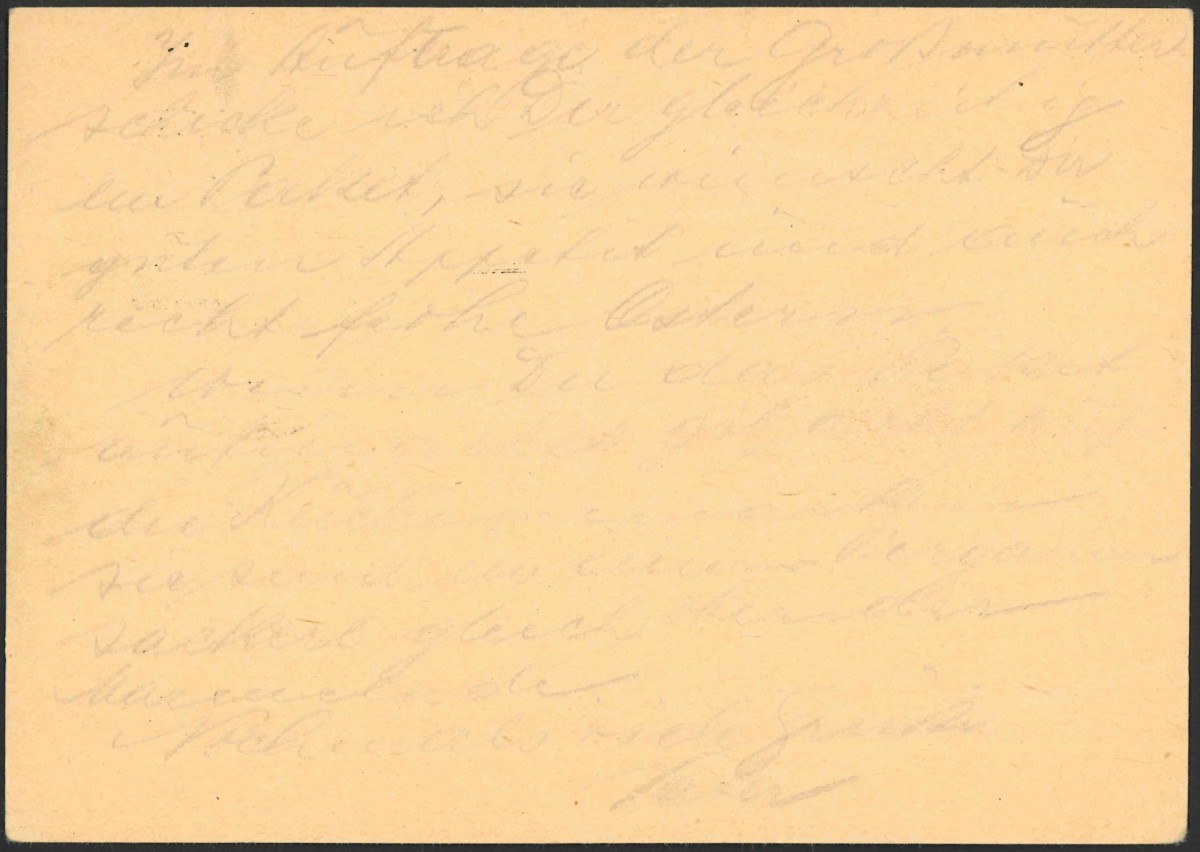 Im Auftrage der Großmutter
schicke ich Dir gleichzeitig
ein Packet, sie wünscht Dir
guten Appetit und auch
recht frohe Ostern
Wenn Du das Packet
gib
die
sie sind in einem
sackerl gleich der
Marmelade
Nochmals viele Grüße